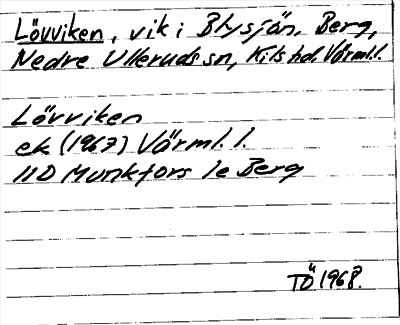 Lövviken, vik i Blysjön, Berg,
Nedre Ulleruds sn, Kils hd, Värml.l.
Lövviken
ek (1967) Värml. l.
11D Munkfors 1e Berg
TÖ 1968.